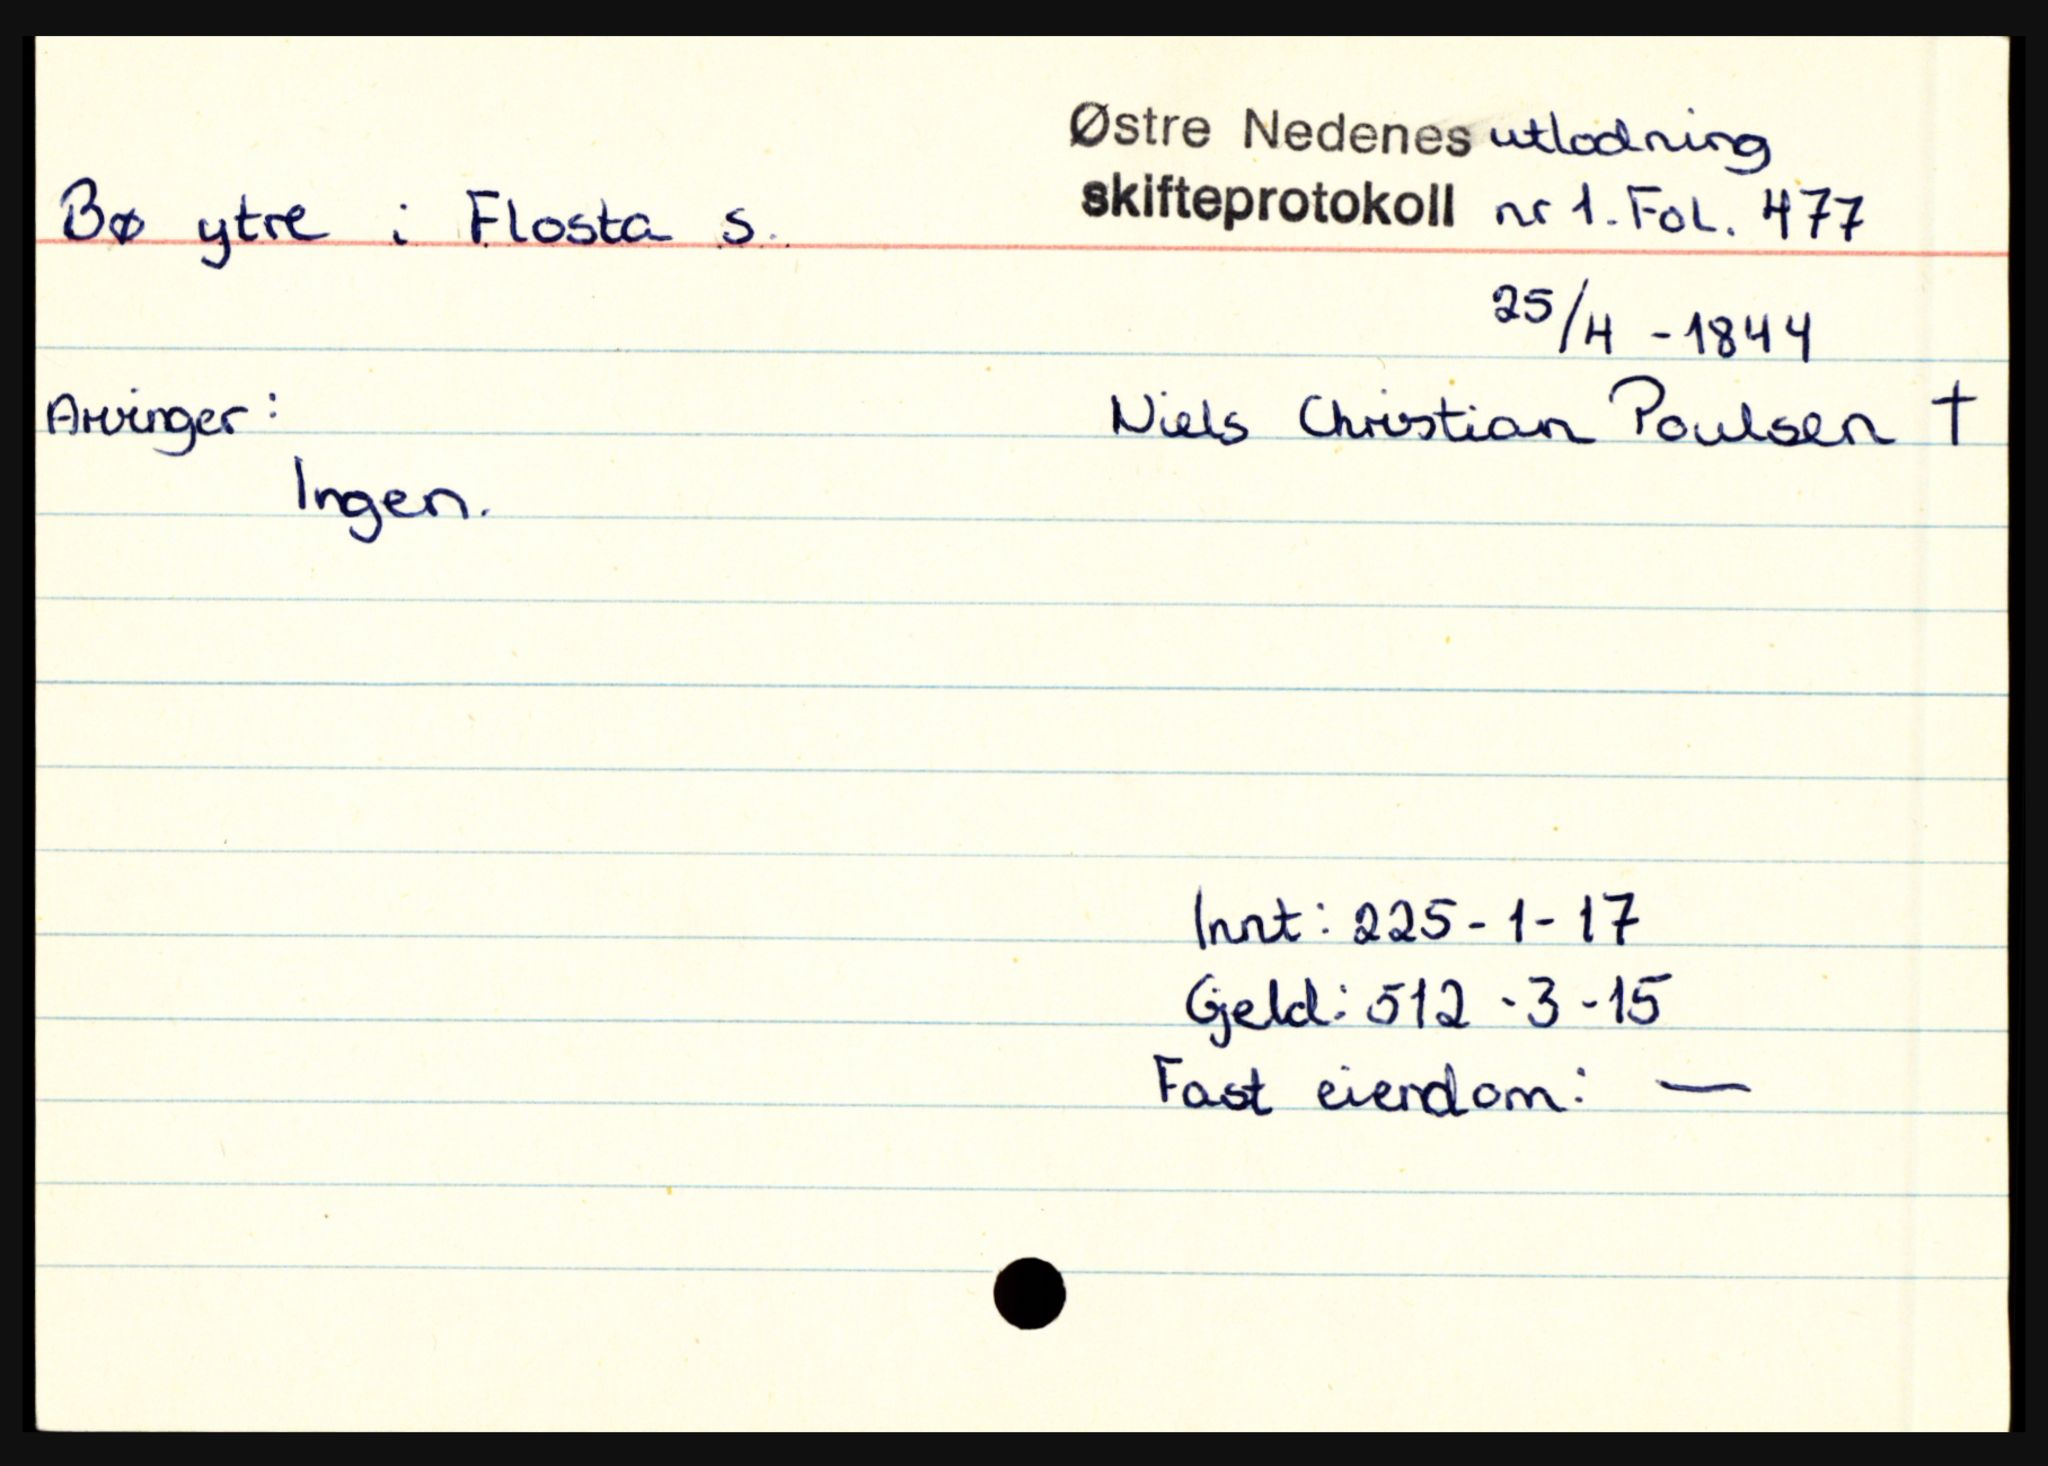 Østre Nedenes utlodning
Bø ytre i Flosta s. skifteprotokoll nr 1. Fol. 477
25/4 - 1844
Arvinger: Niels Christian Poulsen †
Ingen.
Innt: 225 - 1 - 17
Gjeld: 512 - 3 - 15
Fast eiendom: —